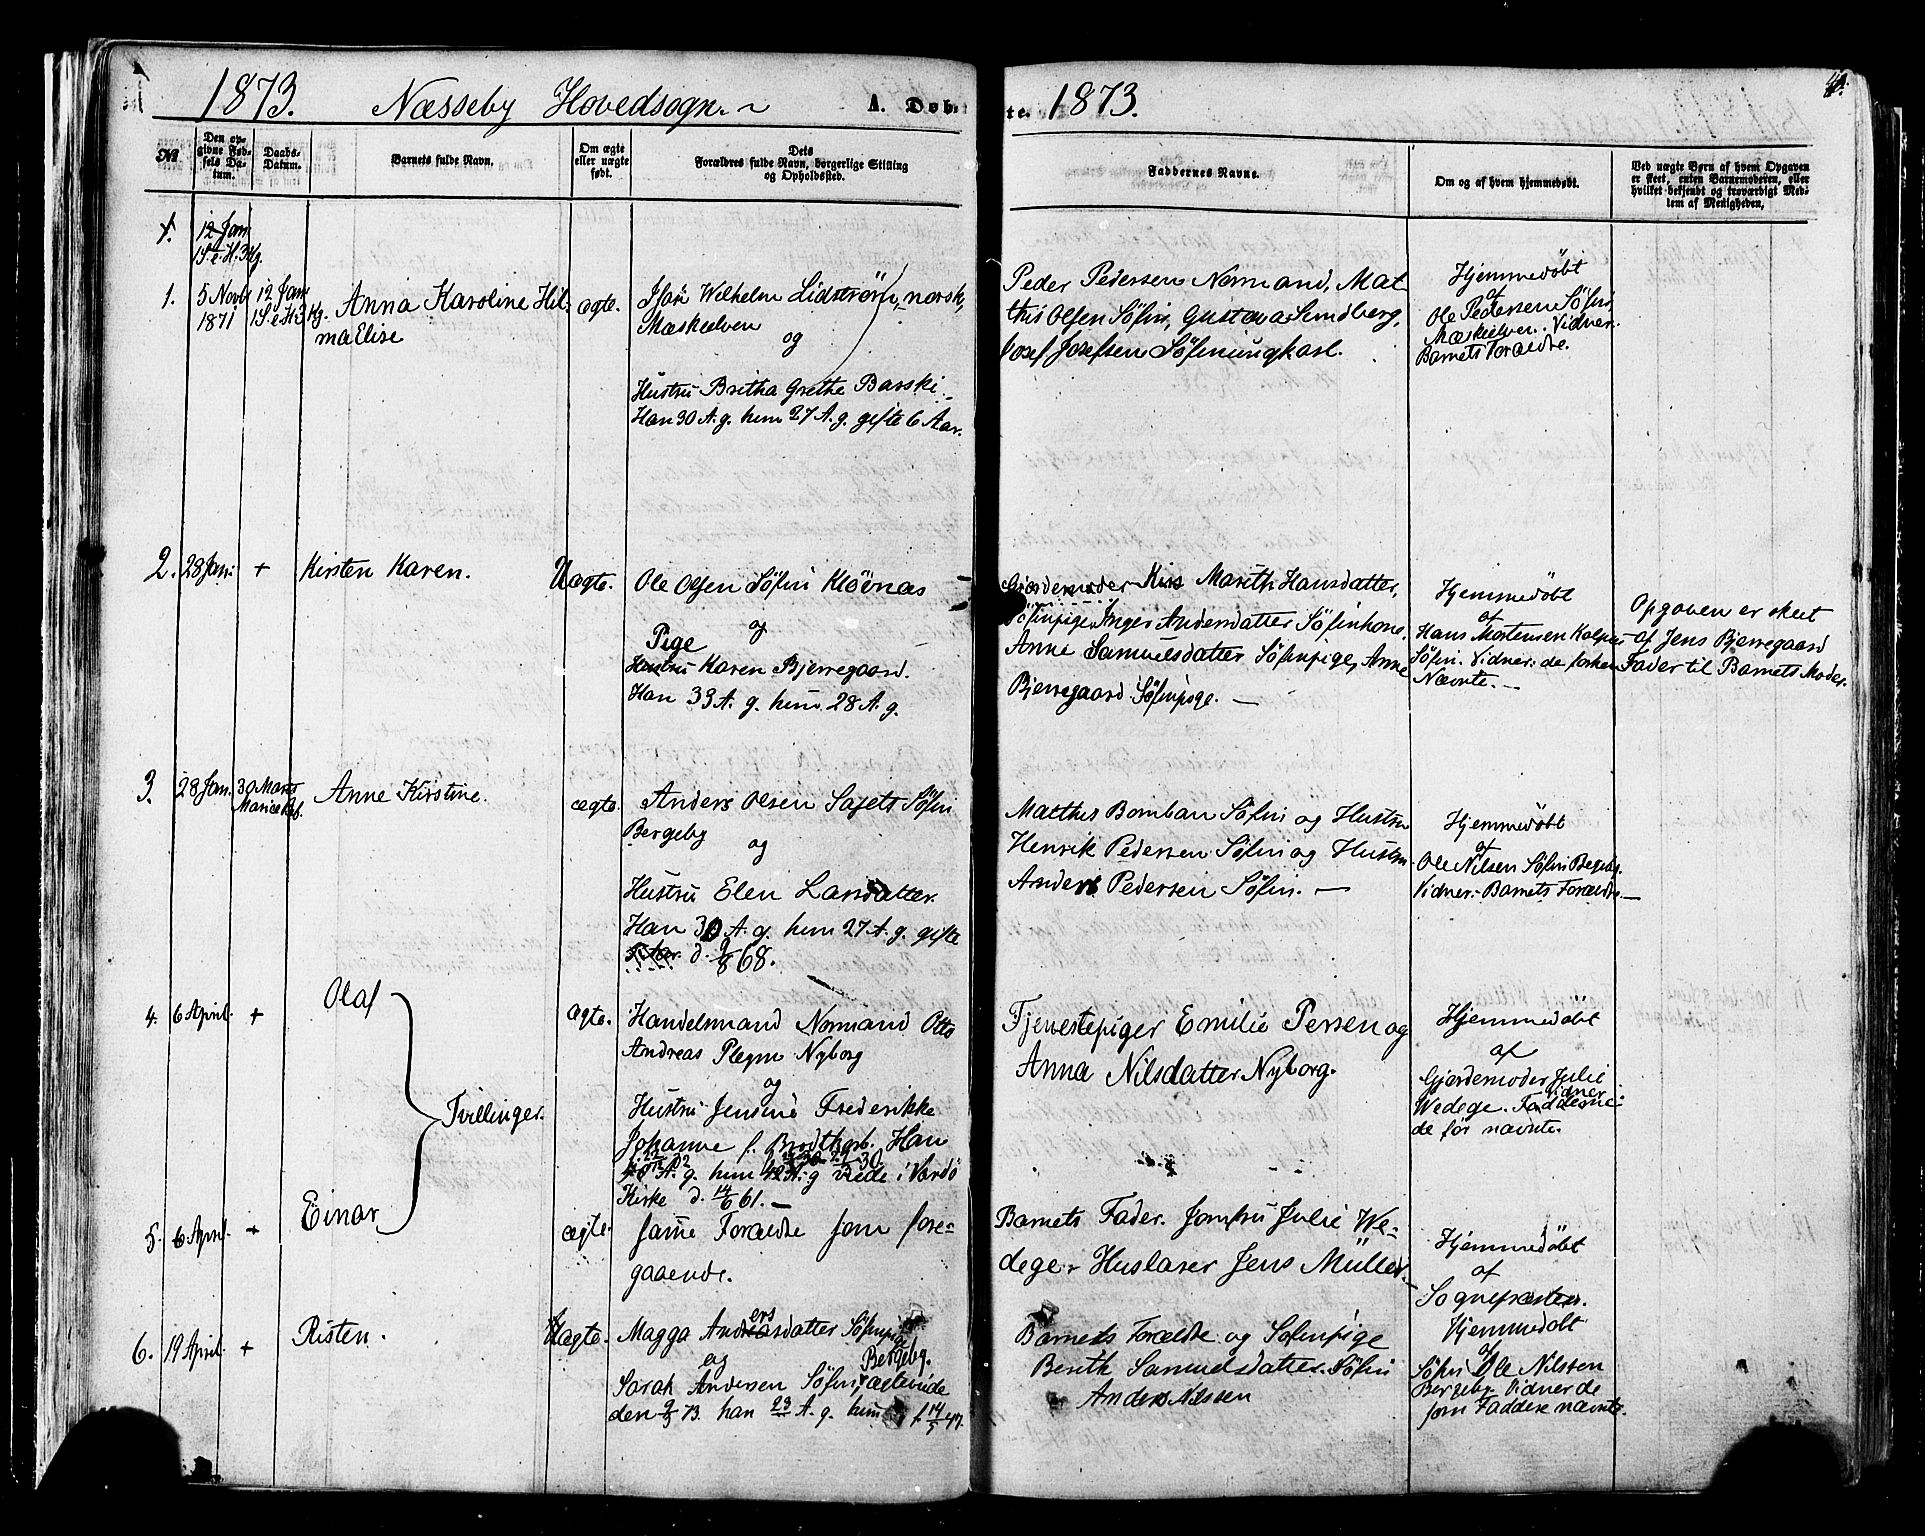 1873. Næsseby Hovedsogn. A. Døb-
te. 1873.
№
Den op-
givne Fød-
sels Da-
tum.
Daabs-
Datum.
Barnets fulde Navn.
Om ægte
eller uægte
født.
Dets
Forældres fulde Navn, borgerlige Stilling
og Opholdssted.
Faddernes Navne.
Om og af hvem hjemmedøbt.
Ved uægte Børn af hvem Opgaven
er skeet, enten Barnemoderen, eller
hvilket bekjendt og troværdigt Med-
lem af Menigheden.
1.
12 Jan
1 S. e. H. 3 Kg.
1.
5 Novb
1871
12 Jan
1 S. e. H. 3 Kg.
Anna Karoline Hil-
ma Elise
ægte.
Isak Wilhelm Lidstrøm, norsk,
Mæskelven
og
Hustru Britha Grethe Barski
Han 30 A. g. hun 27 A. g. gifte 6 Aar.
Peder Pedersen Normand, Mat
this Olsen Söfin, Gustava Sundberg,
Josef Josefsen Söfinungkarl.
Hjemmedöbt
af
Ole Pedersen Söfin
Mæskelven. Vidner:
Barnets Forældre.
2.
28 Jan:
+
Kirsten Karen.
Uægte.
Ole Olsen Söfin Klöönæs
og
Pige
Hustru Karen Bjerregaard.
Han 33 A. g. hun 28 A. g.
Gjordemoder Kirs Marith Hansdatter,
Söfinpige, Inger Andersdatter Söfinkone,
Anne Samuelsdatter Söfinpige, Anne
Bjerregaard Söfinpige. —
Hjemmedöbt
af
Hans Mortensen
Söfin. Vidner: de forhen
Nævnte. —
Opgaven er skeet
af Jens Bjerregaard
Fader til Barnets Moder.
3.
28 Jan.
30 Marts
Mariæ Beb.
Anne Kirstine.
ægte.
Anders Olsen Sajets Söfin
Bergeby
og
Hustru Elen Larsdatter.
Han 30 A. g. hun 27 A. g. gifte
d. 9/8 68.
Matthis Bomban Söfin og Hustru
Henrik Pedersen Söfin og Hustru
Anders Pedersen Söfin. —
Hjemmedöbt
af
Ole Nilsen Söfin Bergeby.
Vidner: Barnets Forældre. —
4.
6 April.
+
Olaf
Tvillinger.
ægte.
Handelsmand Normand Otto
Andreas Pleym Nyborg
og
Hustru Jensine Frederikke
Johanne f. Brodtkorb. Han
A. g. hun A. g viede i Vardö
Kirke d. 14/6 61. —
Fjenestepiger Emilie Persen og
Anna Nilsdatter Nyborg.
Hjemmedöbt
af
Gjordemoder Julie
Wedege. Vidner Faddesne
de för nævnte.
5.
6 April.
+
Einar
ægte.
samme Forældre som fore-
gaaende.
Barnets Fader. Jomfru Julie We-
dege. Huslærer Jens Müller. —
Hjemmedöbt
af
Sognepræsten.
6.
19 April.
+
Risten.
Uægte.
Magga Andersdatter Söfinpige
og Bergeby.
Sarak Andersen Söfin, ægteviede
den 9/3 73. han 23 A. g. hun f. 14/5 47.
Barnets Forældre og Söfinpige
Berith Samuelsdatter. Söfin
Anders Nilssen
Hjemmedöbt
af
Söfin Ole Nilssen
Bergeby. Vidner de
som Faddere nævnte.